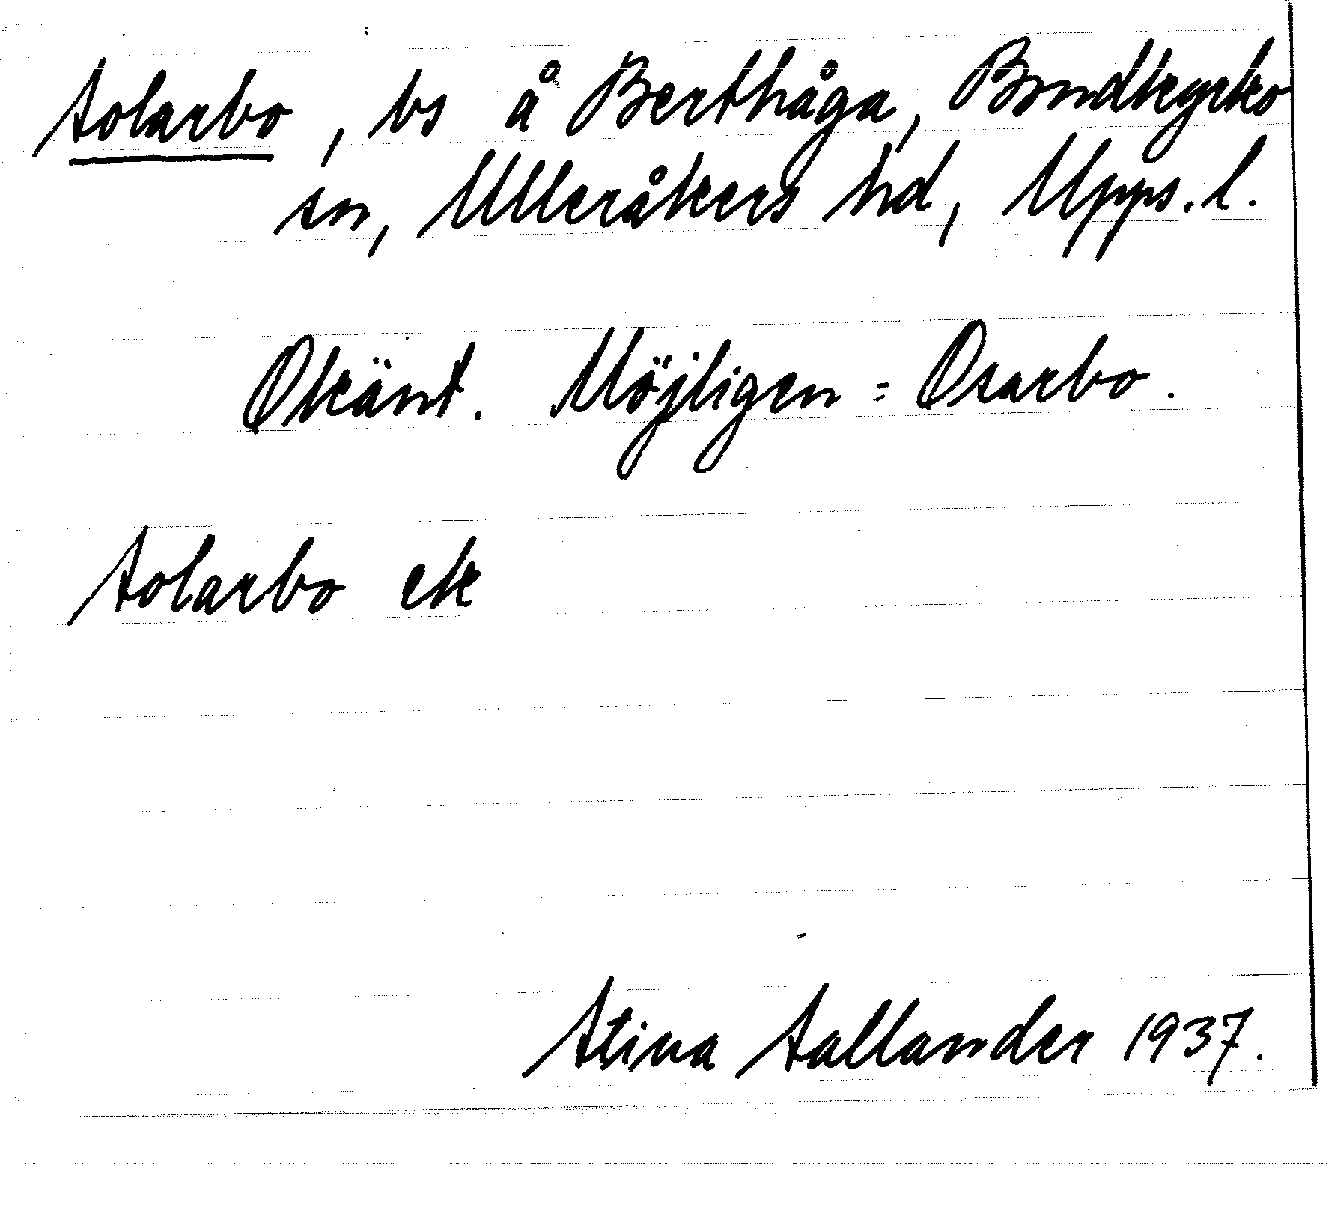 Solarbo, bs å Berthåga, Bondkyrko
sn, Ulleråkers hd, Upps. l.
Okänt. Möjligen = Osarbo.
Solarbo ek
Stina Sallander 1937.